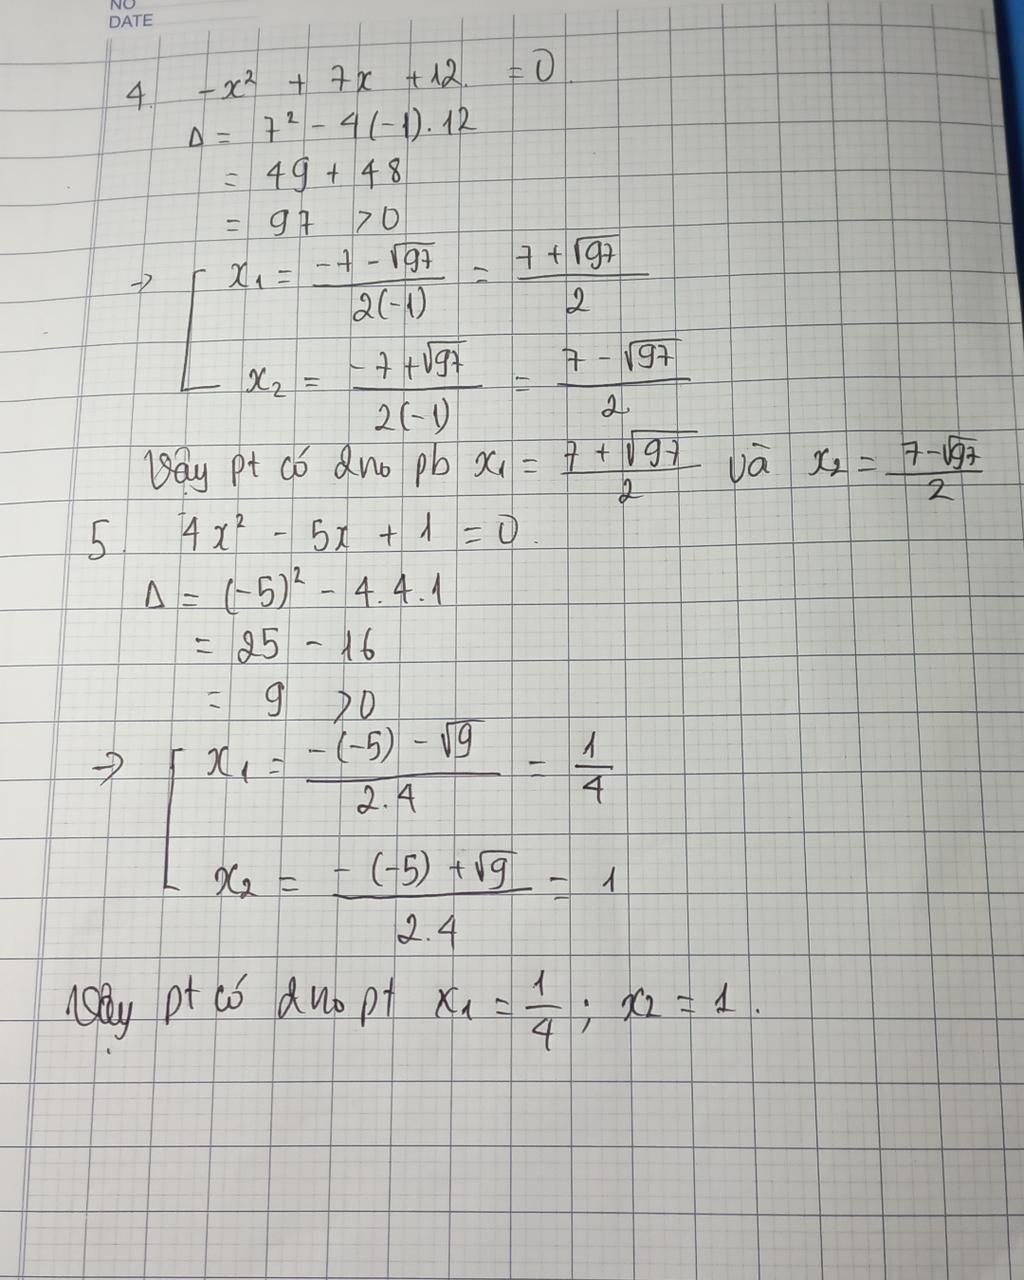 NO
DATE
4. -x² + 7x + 12 = 0.
Δ = 7² - 4(-1).12
= 49 + 48
= 97 >0
→ [ x₁ = (-7 - √97)/(2(-1)) = (7 + √97)/2
x₂ = (-7 + √97)/(2(-1)) = (7 - √97)/2
Vậy pt có 2no pb x₁ = (7 + √97)/2 và x₂ = (7-√97)/2
5. 4x² - 5x + 1 = 0.
Δ = (-5)² - 4.4.1
= 25 - 16
= 9 >0
→ [ x₁ = (-(-5) - √9)/(2.4) = 1/4
x₂ = (-(-5) + √9)/(2.4) = 1
Vậy pt có 2no pt x₁ = 1/4 ; x₂ = 1.